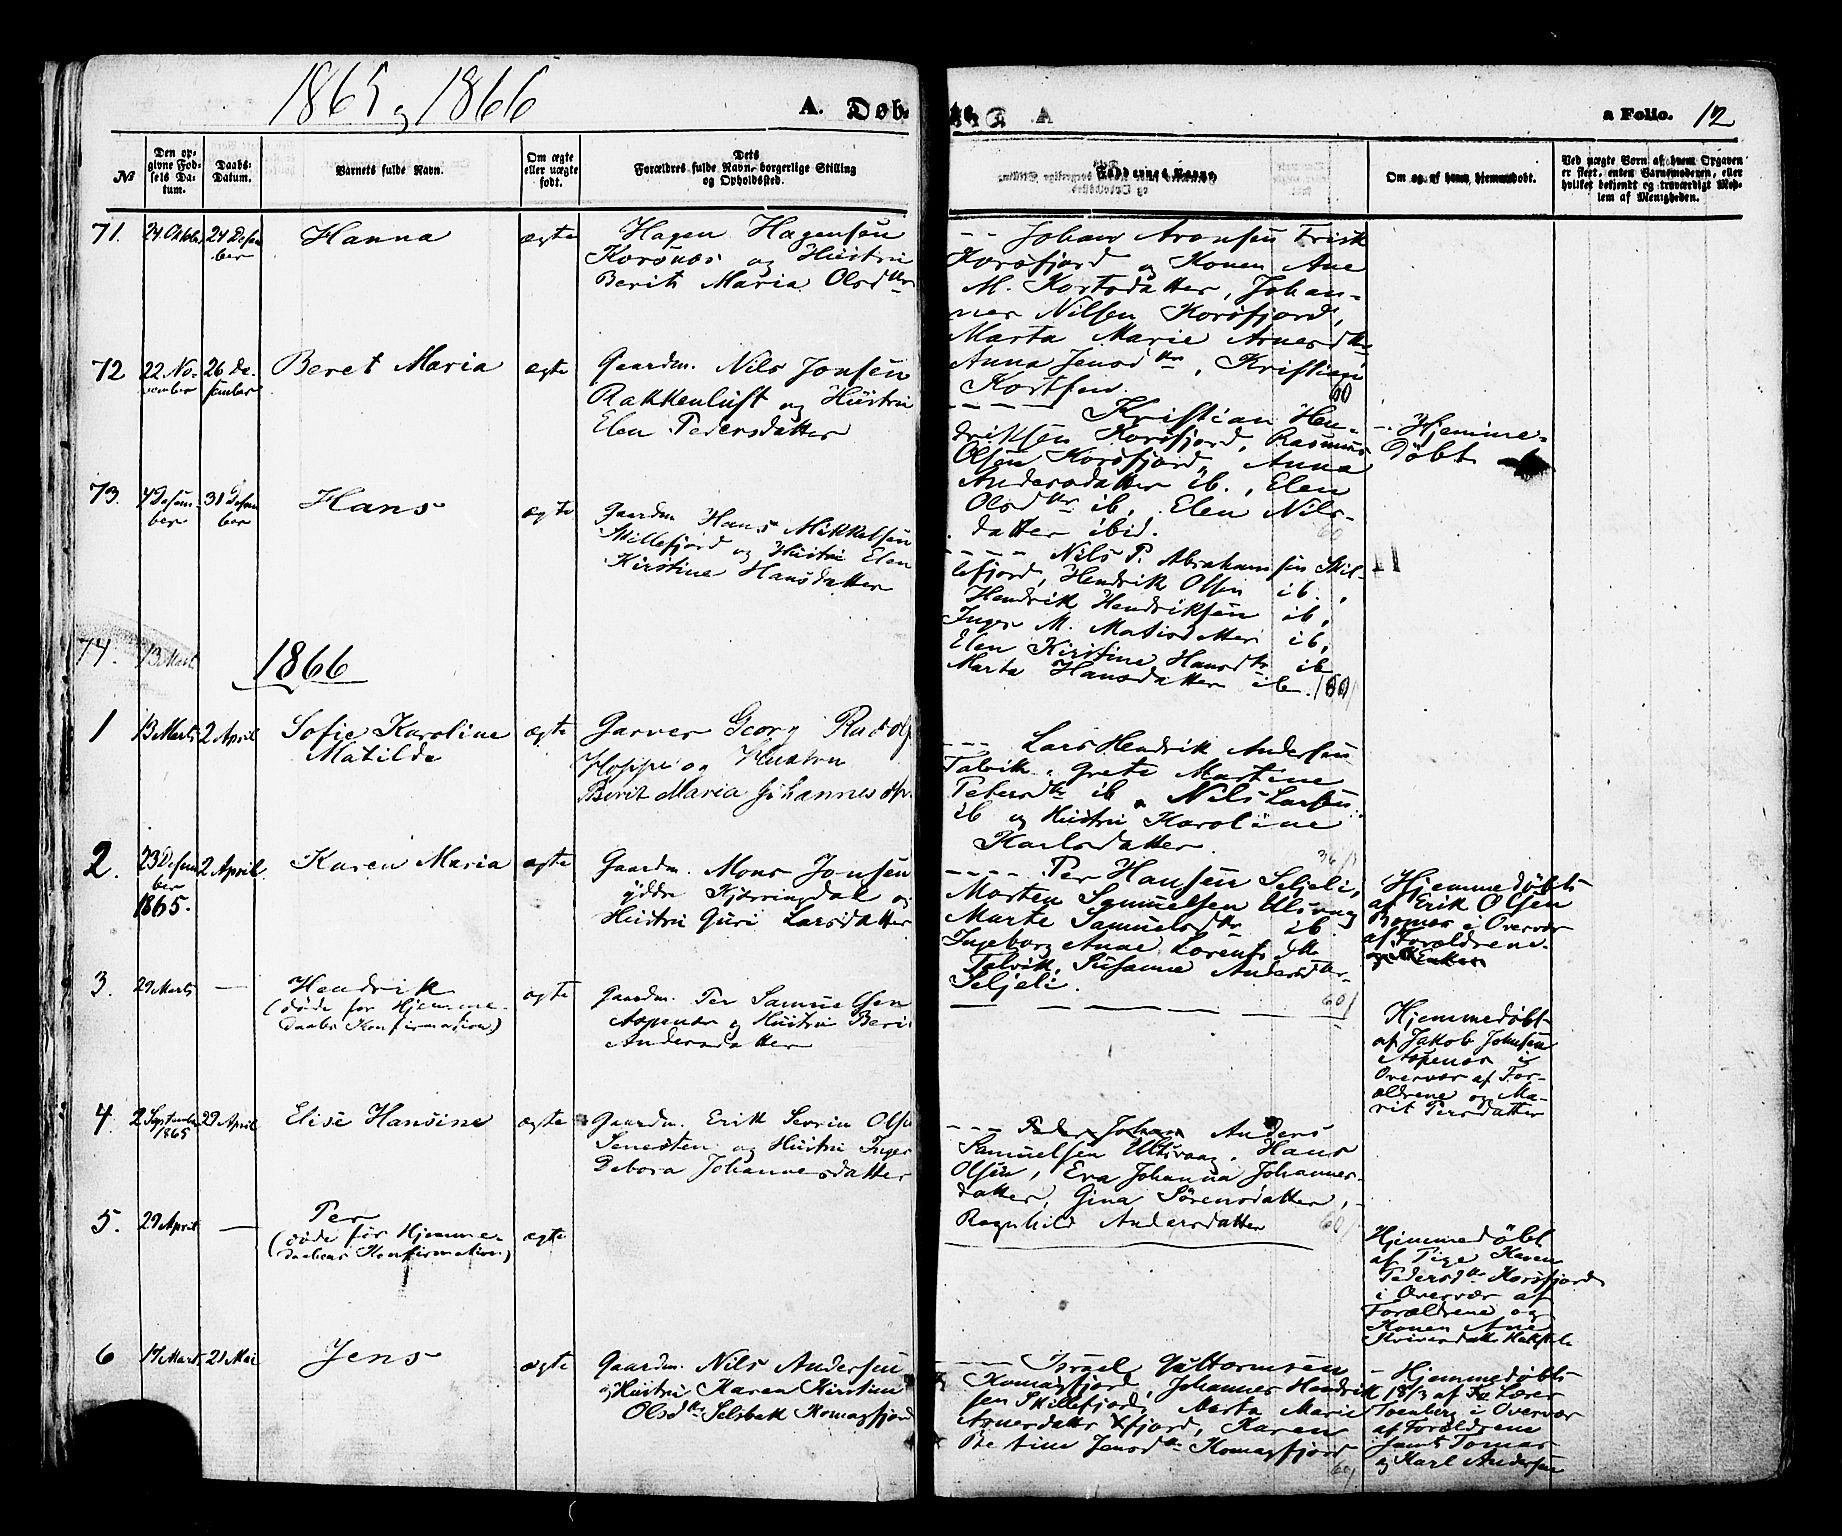 1865 og 1866
A. Døb-
te.
a Folio. 12
No
Den op-
givne Fød-
sels Da-
tum.
Daabs-
Datum.
Barnets fulde Navn.
Om ægte
eller uægte
født.
Dets
Forældres fulde Navn, borgerlige Stilling
og Opholdssted.
Faddernes Navne.
Om og af hvem hjemmedøbt.
Ved uægte Børn af hvem Opgaven
er skeet, enten Barnemoderen, eller
hvilket bekjendt og troværdigt Med-
lem af Menigheden.
71. 24 Oktober 24 Desem
ber
Hanna
ægte
Hagen Hagensen
Korsnes og Hustru
Berit Maria Olsdtr
--- Johan Aronsen Frisk
Korsfjord og Konen Ane
M. Kortsdatter, Johan-
nes Nilsen Korsfjord,
Marta Marie Arnesdtr
Anna Jensdtr, Kristian
Kortsen
60
72 22. No-
vember
26 De-
sember
Beret Maria
ægte
Gaardm. Nils Jonsen
Rakkenluft og Hustru
Elen Pedersdatter
---- Kristian Hen-
driksen Korsfjord, Rasmus
Olsen Korsfjord, Anna
Andersdatter ib., Elen
Olsdtr ib, Elen Nils-
datter ibid.
60
- Hjemme-
døbt
73. 4 Desem-
ber
31 Desem
ber
Hans
ægte
Gaardm Hans Mikkelsen
Skillefjord og Hustru Elen
Kirstine Hansdatter
---- Nils P. Abrahamsen Skil-
lefjord, Hendrik Olsen ib.,
Hendrik Hendriksen ib,
Inger M. Matisdatter ib,
Elen Kirstine Hansdtr ib
Marta Hansdatter ib.
60
74. 13 Mart
1866
1 13 Marts 2 April
Sofie Karoline
Matilde
ægte
Garver Georg Rudolf
Hoppe og Hustru
Berit Maria Johannesdtr.
--- Lars Hendrik Andersen
Talvik, Grete Martine
Petersdtr ib, Nils Larsen
ib og Hustru Karoline
Karlsdatter.
36
2. 23 Desem
ber
1865.
2 April.
Karen Maria
ægte
Gaardm. Mons Jonsen
yddre Kjerringdal og
Hustru Guri Larsdatter
---- Per Hansen Seljeli,
Morten Samuelsen Ulsvaag
Marte Samuelsdtr ib.
Ingeborg Anne Lorentsdtr
Talvik, Susanne Andersdtr.
Seljeli.
60
Hjemmedøbt
af Erik Olsen
i Overvær
af Forældrene.
3. 29 Marts —
Hendrik
(døde før Hjemme-
daabs Konfirmation)
ægte
Gaardm. Per Samuelsen
Aspenes og Hustru Beri
Andersdatter
Hjemmedøbt
af Jakob Johnsen
Aspenes i
Overvær af For-
ældrene og Ma-
rit Persdatter
4. 2 September
1865
29 April
Elise Hansine
ægte
Gaardm. Erik Severin Olsen
og Hustru Inger
Debora Johannesdatter
--- Peder Johan Anders
Samuelsen Ulsvaag, Hans
Olsen, Eva Johanna Johannes-
datter, Gina Sørensdatter,
Ragnhild Andersdatter
60
5. 29 April —
Per
(døde før Hjemme-
daabens Konfirmation)
ægte
Hjemmedøbt
af Pige Karen
Pedersdtr Korsfjord
i Overvær af
Forældrene og
Konen Ane
6 17 Marts 21 Mai
Jens
ægte
Gaardm. Nils Andersen
og Hustru Karen Kirstine
Olsdtr Selsbak Komagfjord
--- Israel Guttormsen
Komagfjord, Johannes Hendrik
sen Skillefjord, Marta Marie
Agnesdatter Kfjord, Karen
Bertine Jensdtr Komagfjord
60
- Hjemmedøbt
18/3 af Lærer
Toenberg i Overvær
af Forældrene
samt Tomas
og Karl Andersen